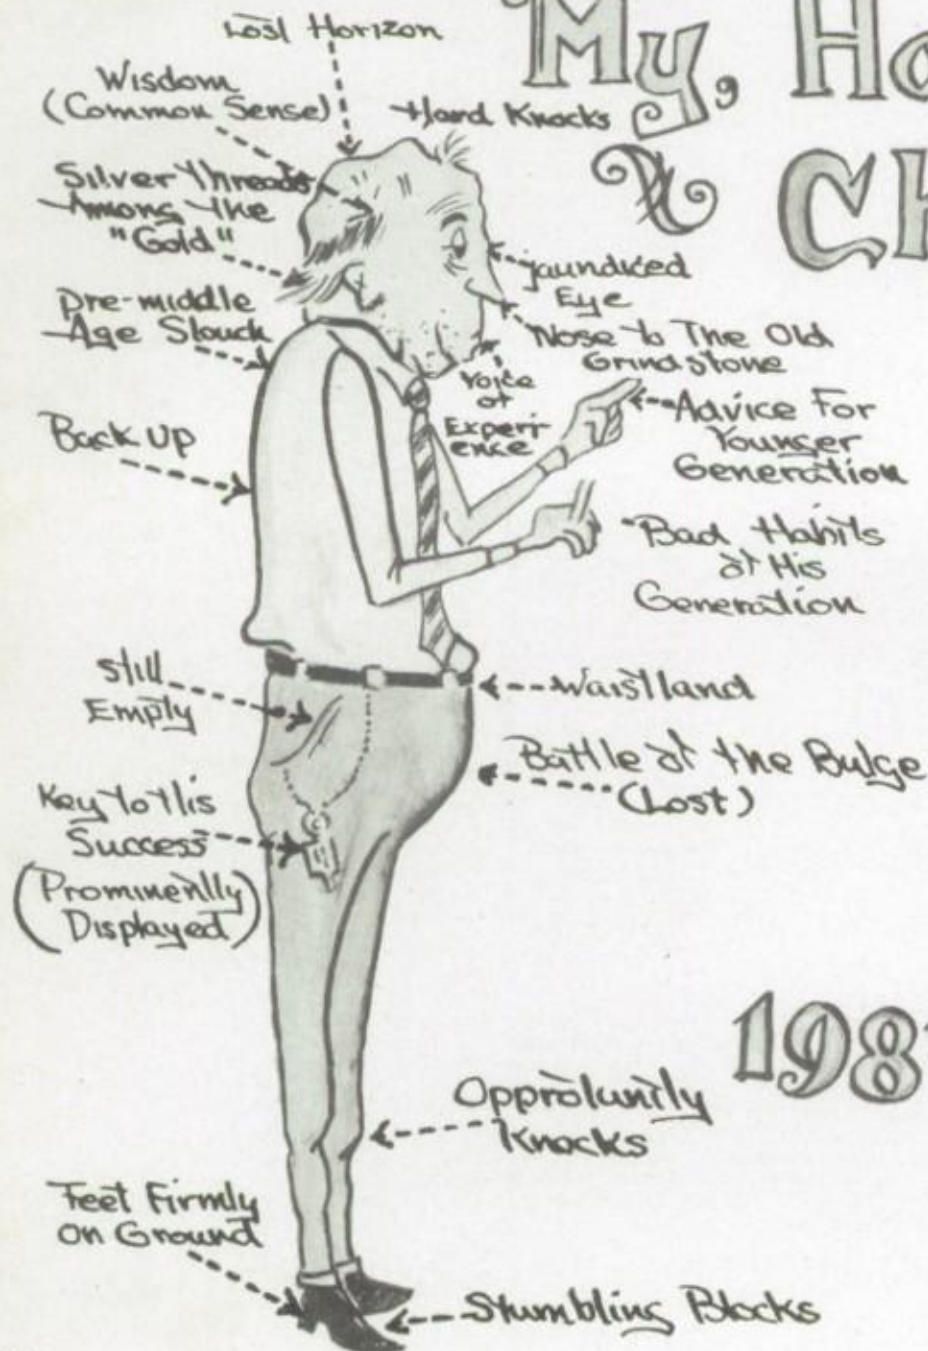 Lost Horizon
My, Ho
Ch
Wisdom
(Common Sense)
Hard Knocks
Silver threads
Among the
"Gold"
Jaundiced
Eye
Pre-middle
Age Slouch
Nose to The Old
Grindstone
Voice
of
Experi-
ence
Advice For
Younger
Generation
Back Up
Bad Habits
of His
Generation
Still
Empty
Waistland
Battle of the Bulge
(Lost)
Key to His
Success
(Prominently
Displayed)
198
Opprotunity
Knocks
Feet Firmly
on Ground
Stumbling Blocks